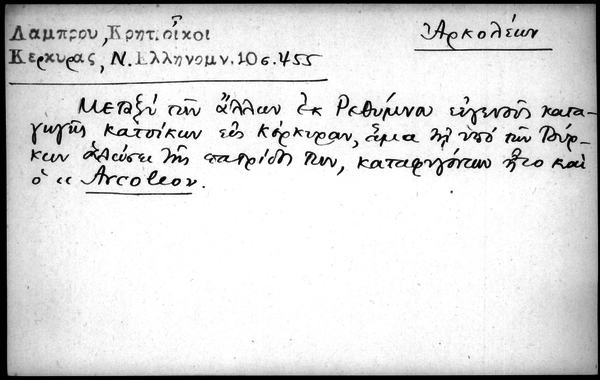 Λαμπρου, Κρητ. οἶκοι
Κερκυρας, Ν. Ελληνομν. 10 σ. 455
Ἀρκολέων
Μεταξύ τῶν ἄλλων ἐκ Ρεθύμνου εὐγενοῦς κατα-
γωγῆς κατοίκων εἰς Κέρκυραν, ἅμα τῇ ὑπό τῶν Τούρ-
κων ἁλώσει τῆς πατρίδος των, καταφυγόντων ἦτο καί
ὁ « Arcoleon.